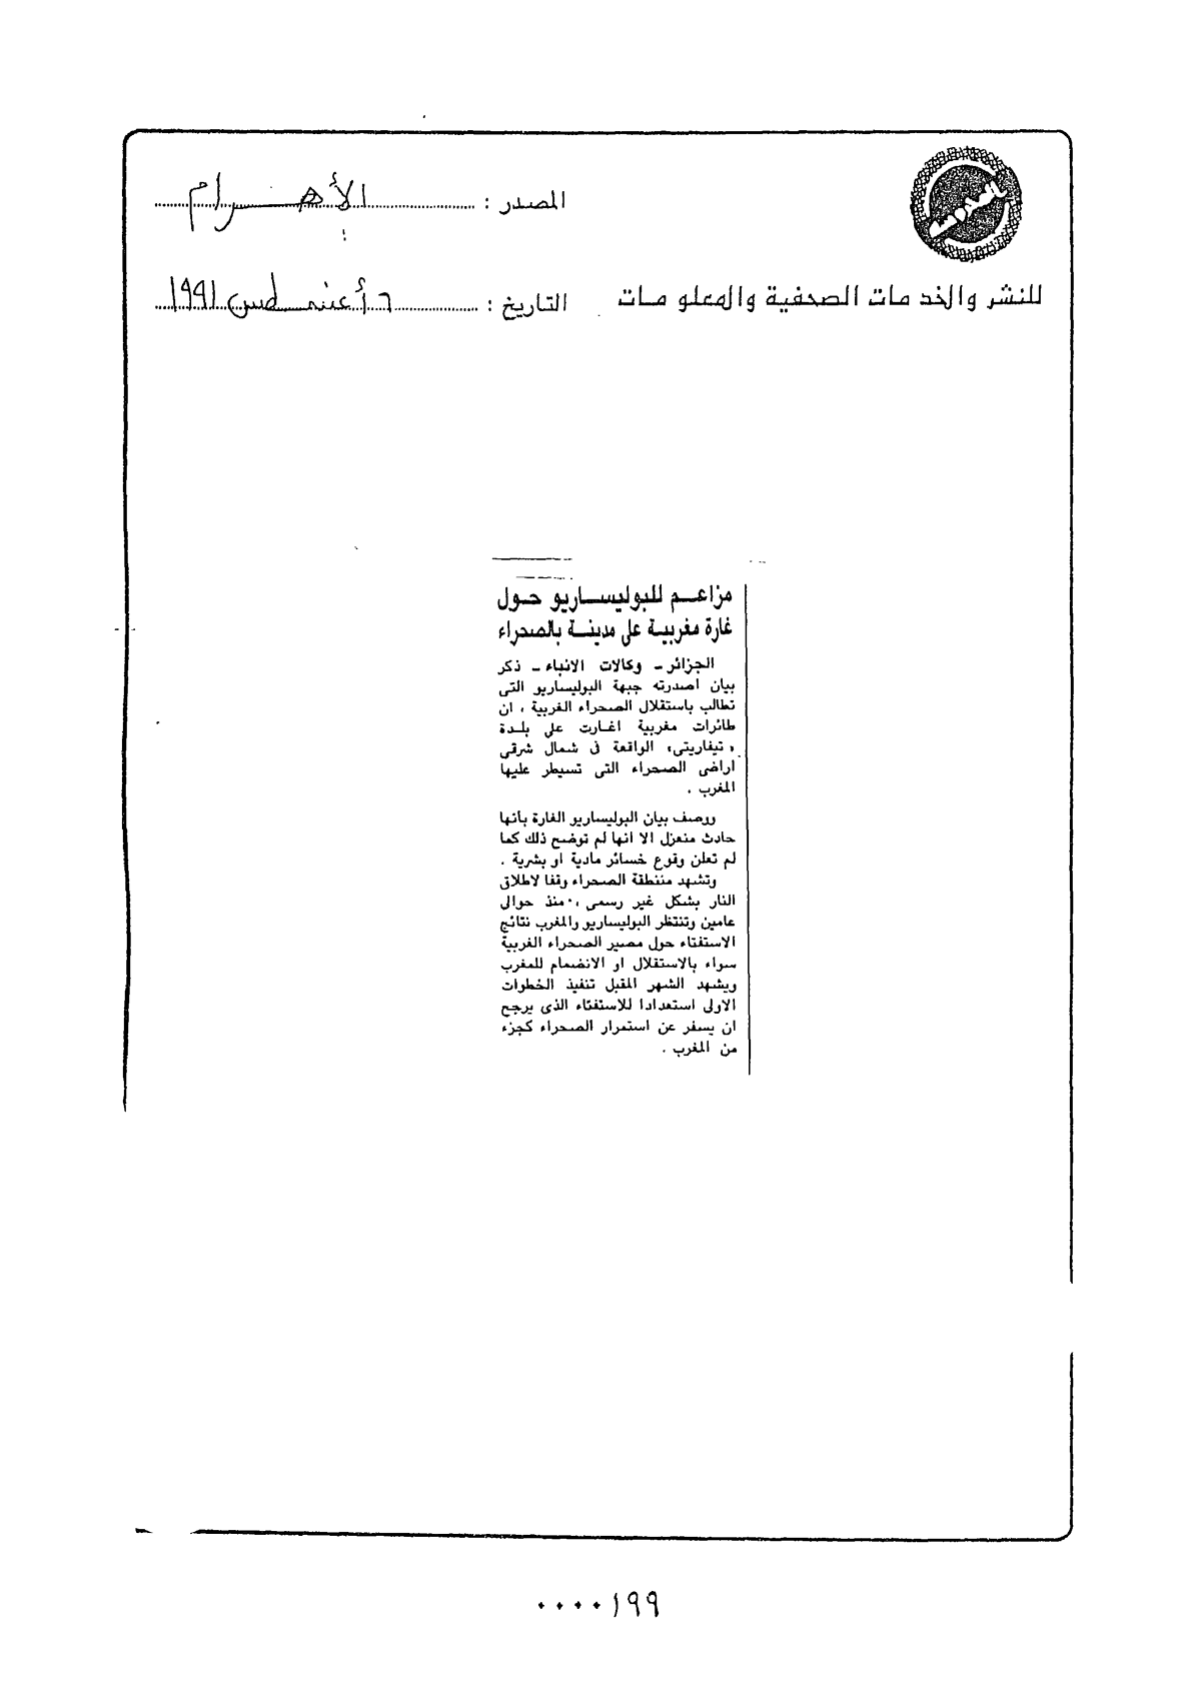 المصدر : الأهـرام
للنشر والخدمات الصحفية والمعلومات
التاريخ : ٦ أغسطس ١٩٩١
مزاعـم للبوليسـاريو حـول
غارة مغربيـة على مدينـة بالصحراء
الجزائر ـ وكالات الانباء ـ ذكر
بيان اصدرته جبهة البوليساريو التى
تطالب باستقلال الصحراء الغربية ، ان
طائرات مغربية اغارت على بلدة
، تيفاريتى، الواقعة فى شمال شرقى
اراضى الصحراء التى تسيطر عليها
المغرب .
ووصف بيان البوليساريو الغارة بأنها
حادث منعزل الا انها لم توضح ذلك كما
لم تعلن وقوع خسائر مادية او بشرية .
وتشهد منطقة الصحراء وقفا لاطلاق
النار بشكل غير رسمى ، منذ حوالى
عامين وتنتظر البوليساريو والمغرب نتائج
الاستفتاء حول مصير الصحراء الغربية
سواء بالاستقلال او الانضمام للمغرب
ويشهد الشهر المقبل تنفيذ الخطوات
الاولى استعدادا للاستفتاء الذى يرجح
ان يسفر عن استمرار الصحراء كجزء
من المغرب .
٠٠٠٠١٩٩